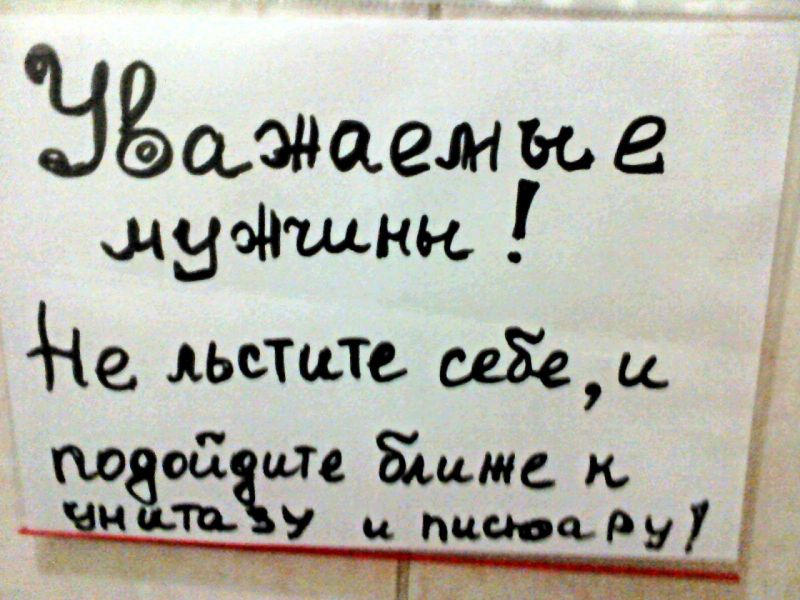 Уважаемые
мужчины!
Не льстите себе, и
подойдите ближе к
унитазу и писюару!